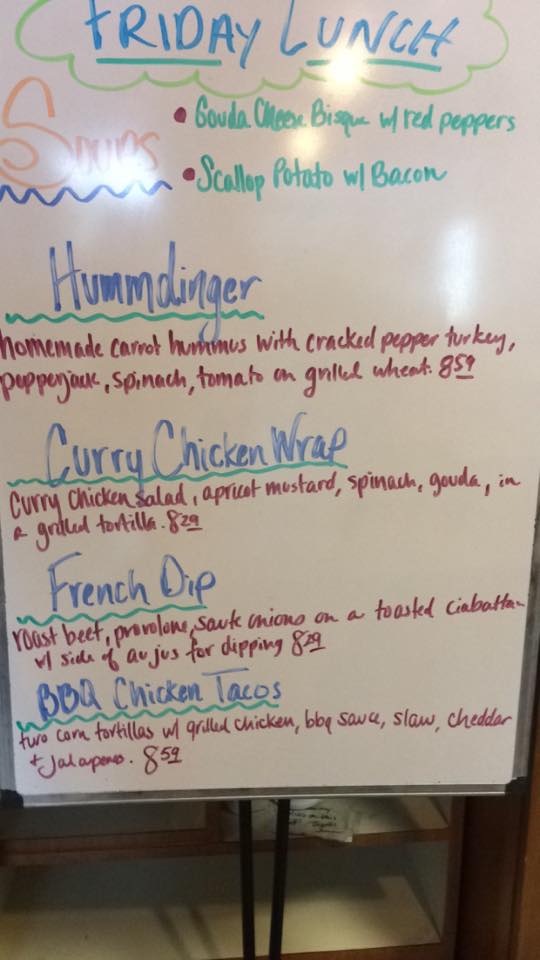 FRIDAY LUNCH
Soups
• Gouda Cheese Bisque w/ red peppers
• Scallop Potato w/ Bacon
Hummdinger
homemade carrot hummus with cracked pepper turkey,
pepperjack, spinach, tomato on grilled wheat. 8.59
Curry Chicken Wrap
curry chicken salad, apricot mustard, spinach, gouda, in
a grilled tortilla. 8.29
French Dip
roast beef, provolone, saute onions on a toasted ciabatta
w/ side of au jus for dipping 8.29
BBQ Chicken Tacos
two corn tortillas w/ grilled chicken, bbq sauce, slaw, cheddar
+ jalapenos. 8.59